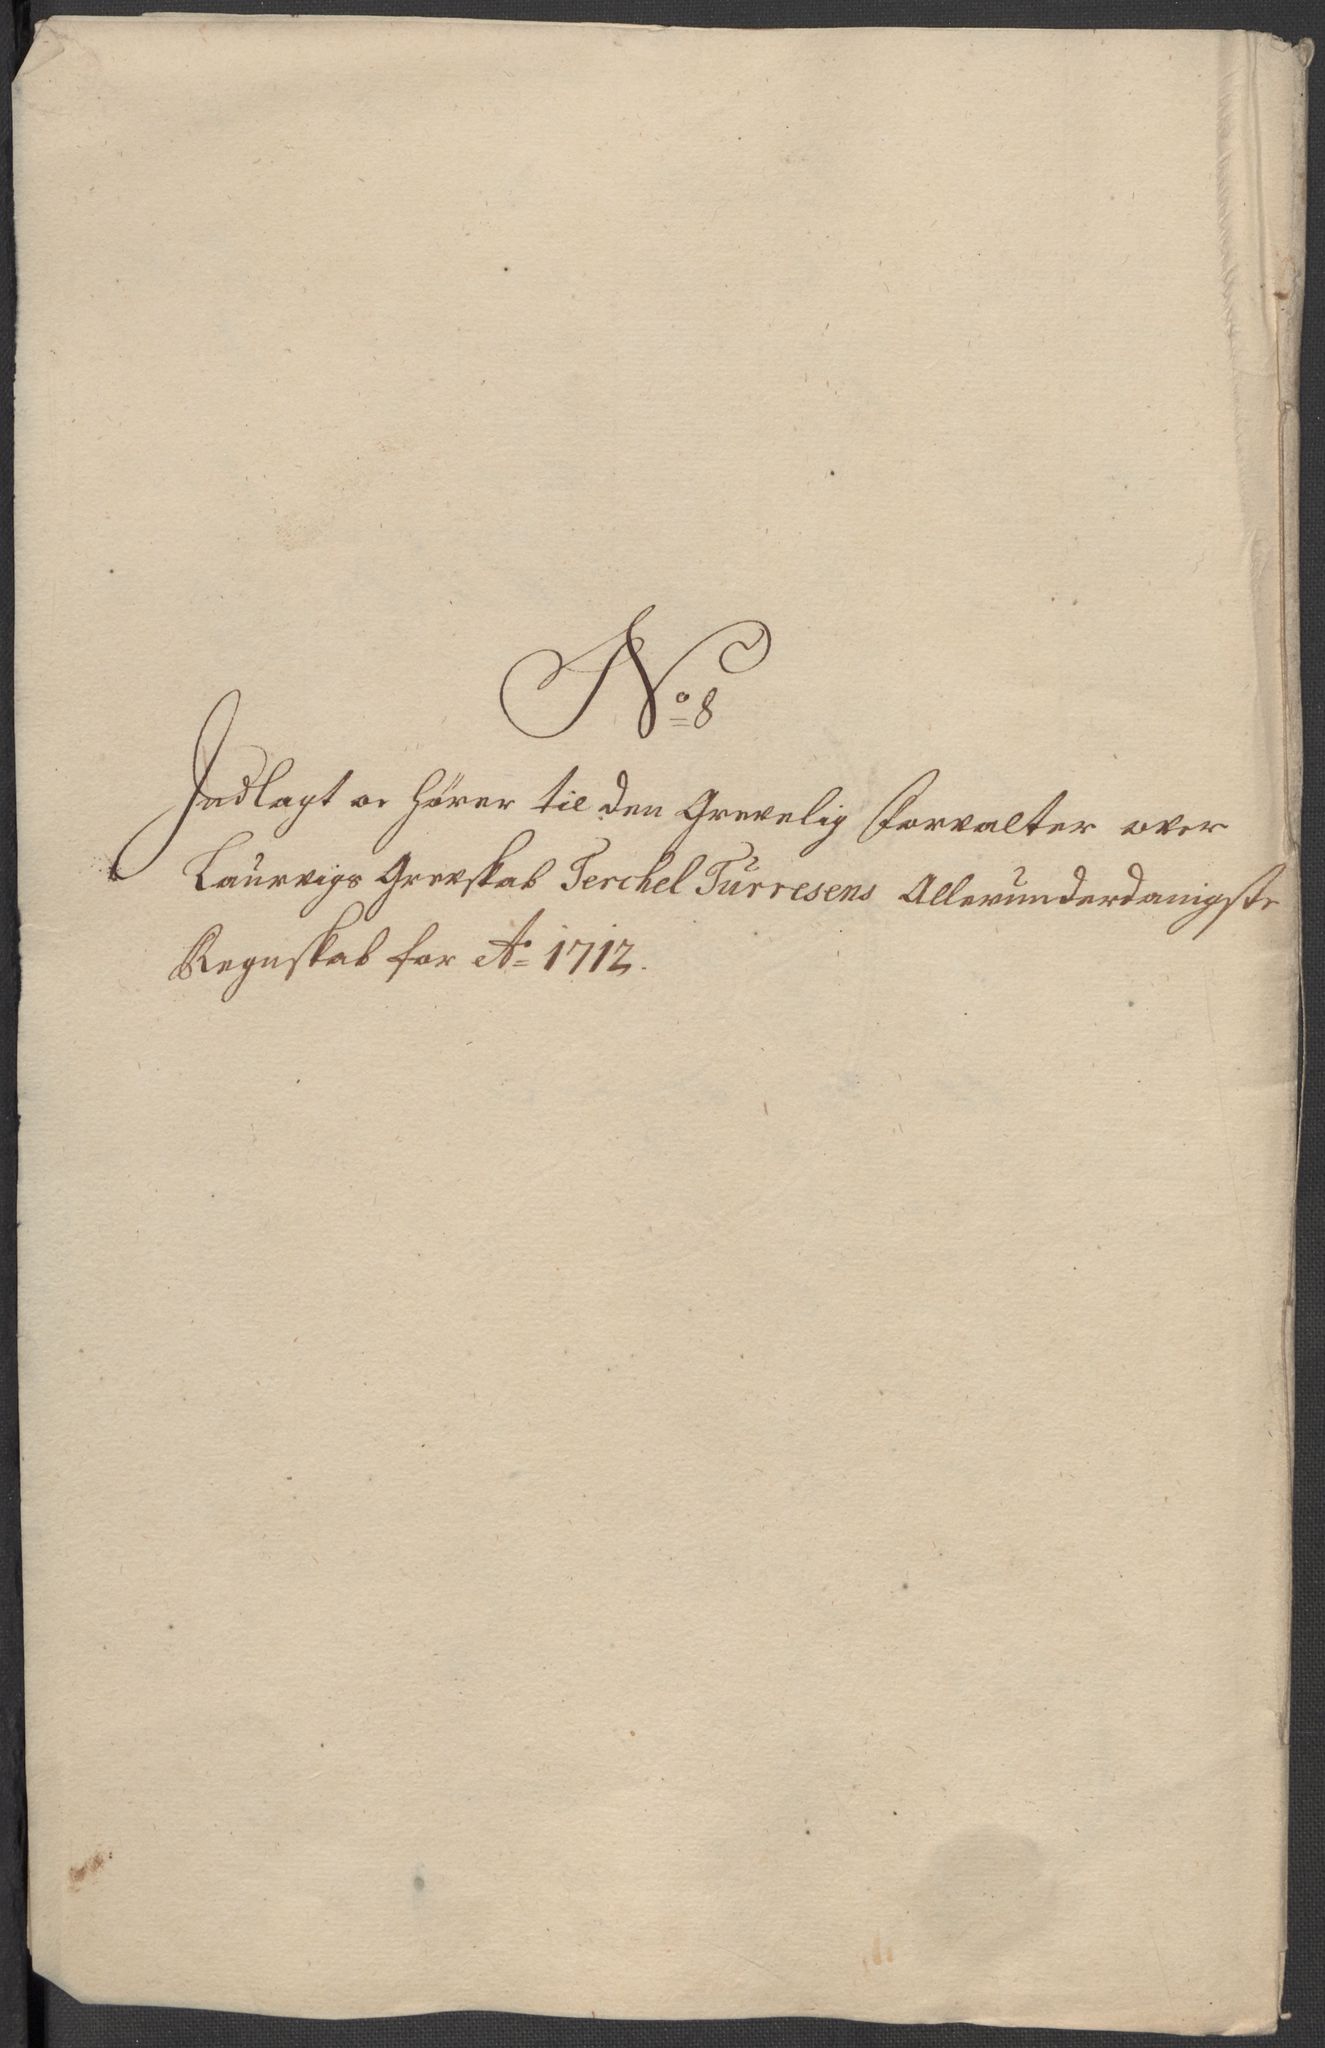 No 8
Indlagt oc hører til den Grevelig Forvalter over
Laurvigs Grevskab Terchel Turresens Allerunderdanigste
Regnskab for Ao 1712.